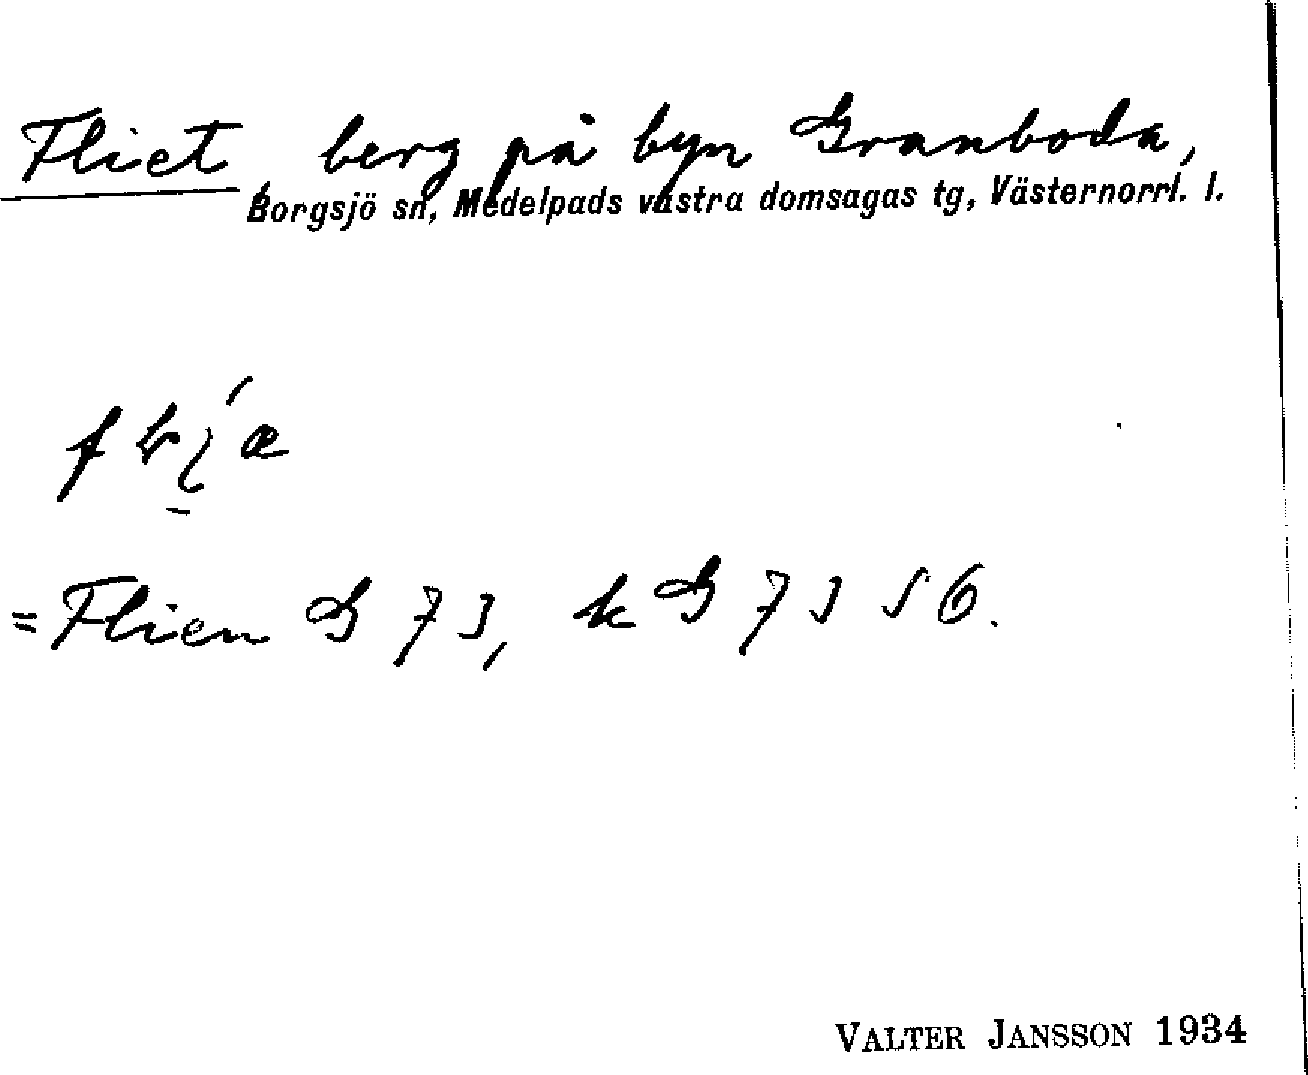 Fliet berg på byn Granboda,
Borgsjö sn, Medelpads västra domsagas tg, Västernorrl. l.
=Flien G 73, k G 73 S 6.
VALTER JANSSON 1934